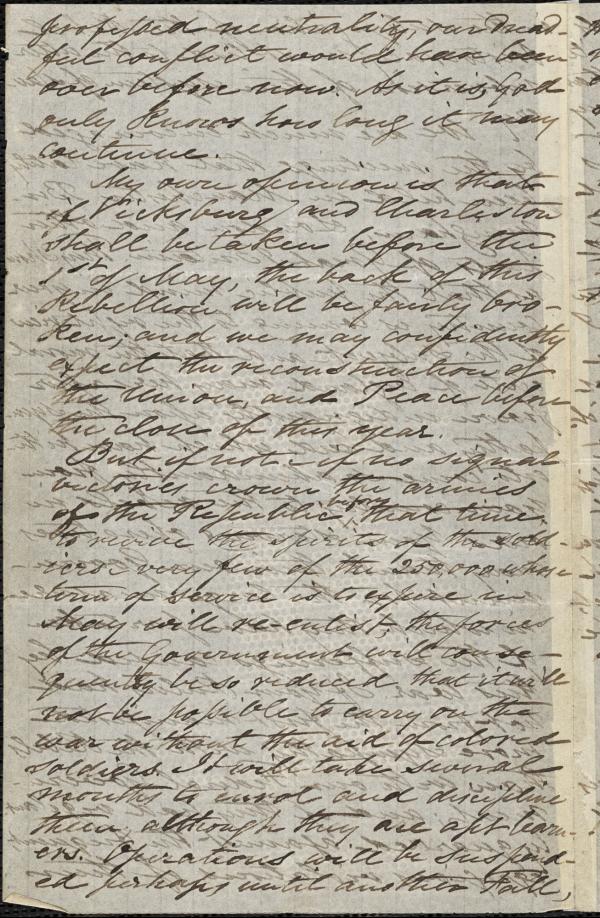 professed neutrality, our dread-
ful conflict would have been
over before now. As it is, God
only knows how long it may
continue.
My own opinion is that
if Vicksburg and Charleston
shall be taken before the
1st of May, the back of this
Rebellion will be fairly bro-
ken, and we may confidently
expect the reconstruction of
the Union, and Peace before
the close of this year.
But if not - if no signal
victories crown the armies
of the Republic before that time
to revive the spirits of the sold-
iers very few of the 250,000 whose
term of service is to expire in
May will re-enlist, the forces
of the Government will conse-
quently be so reduced that it will
not be possible to carry on the
war without the aid of colored
soldiers. It will take several
months to enrol and discipline
them, although they are apt learn-
ers. Operations will be suspend-
ed perhaps until another Fall,